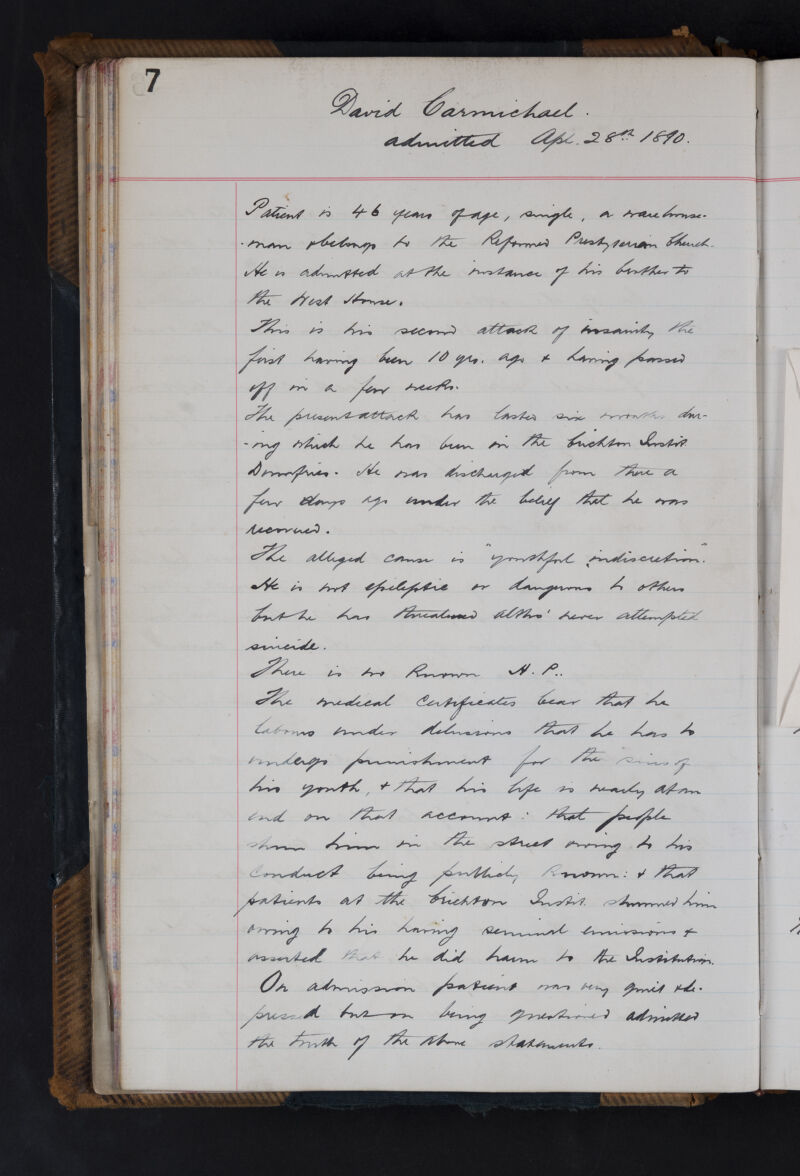 7
David Carmichael.
admitted Apl. 28th 1890.
Patient is 46 years of age, single, a warehouse-
-man & belongs to the Reformed Presbyterian Church.
He is admitted at the instance of his brother to
the West House.
This is his second attack of insanity the
first having been 10 yrs. ago & having passed
off in a few weeks.
The present attack has lasted six months dur-
-ing which he has been in the Crichton Instit
Dumfries. He was discharged from there a
few days ago under the belief that he was
recovered.
The alleged cause is "youthful indiscretion".
He is not epileptic or dangerous to others
but he has threatened altho' never attempted
suicide.
There is no known H.P..
The medical certificates bear that he
labours under delusions that he has to
undergo punishment for the sins of
his youth, & that his life is nearly at an
end on that account: that people
shun him in the street owing to his
conduct being publicly known: & that
patients at the Crichton Instit. shunned him
owing to his having seminal emissions &
asserted that he did harm to the Institution.
On admission patient was very quiet & de-
pressed but on being questioned admitted
the truth of the above statements.